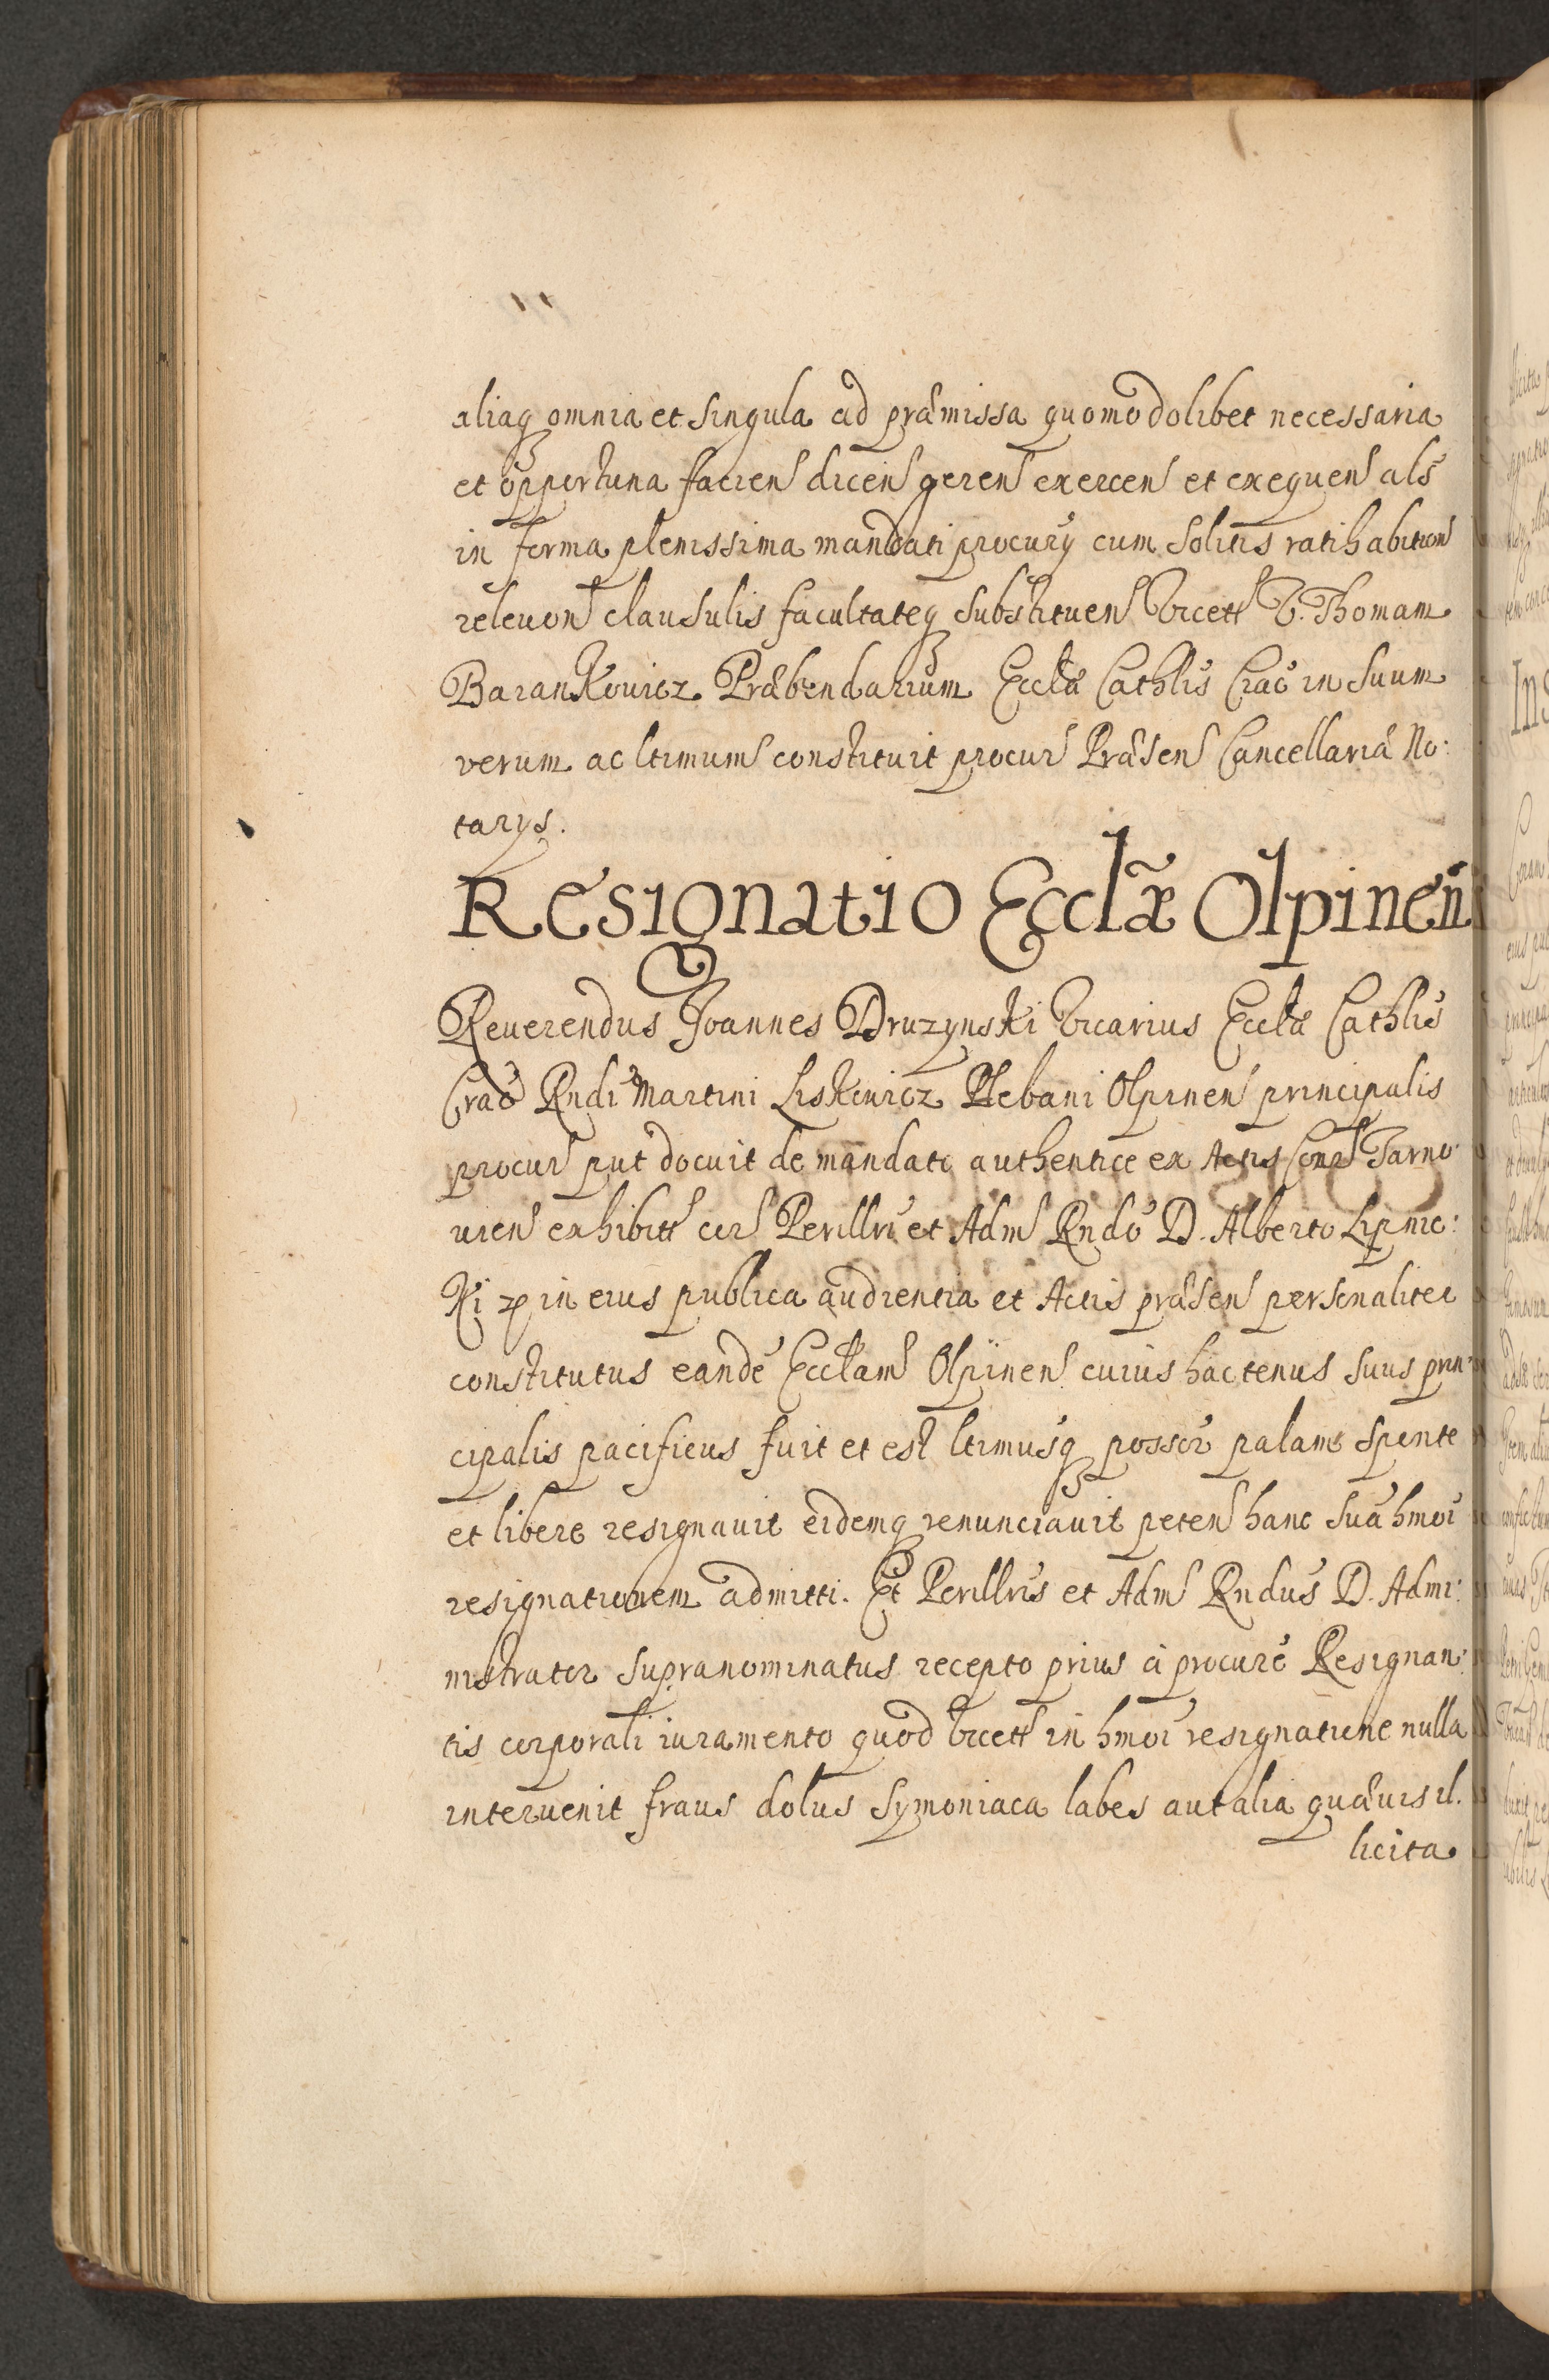 aliaq̃ omnia et singula ad præmissa quomodolibet necessaria
et opportuna facien dicen geren exercen et exequen als
in forma plenissima mandati procurÿ cum solitis ratihabition
releuon clausulis facultateq̃ substituen Vicett V. Thomam
Barankouicz Præbendarium Eccłæ Cathlis Crac in suum
verum ac ltimum constituit procur Præsen Cancellariæ No:
tarÿs.
Resignatio Ecclæ Olpinen
Reuerendus Joannes Druzynski Vicarius Eccłæ Cathlis
Crac Rndi Martini Liskowicz Plebani Olpinen principalis
procur put docuit de mandato authentice ex Actis Cons Tarno:
uien exhibitt cor Perillri et Adm Rndo D. Alberto Lipnic:
ki in eius publica audientia et Actis præsen personaliter
constitutus eandé Eccłam Olpinen cuius hactenus suus prin:
cipalis pacificus fuit et est ltimusq̃ possor palam sponte
et libere resignauit eidemq̃ renunciauit peten hanc suã hmoi
resignationem admitti. Et Perillris et Adm Rndus D. Admi:
nistrator supranominatus recepto prius à procure Resignan:
tis corporali iuramento quod Vicett in hmoi resignatione nulla
interuenit fraus dolus symoniaca labes aut alia quæuis il.
licita